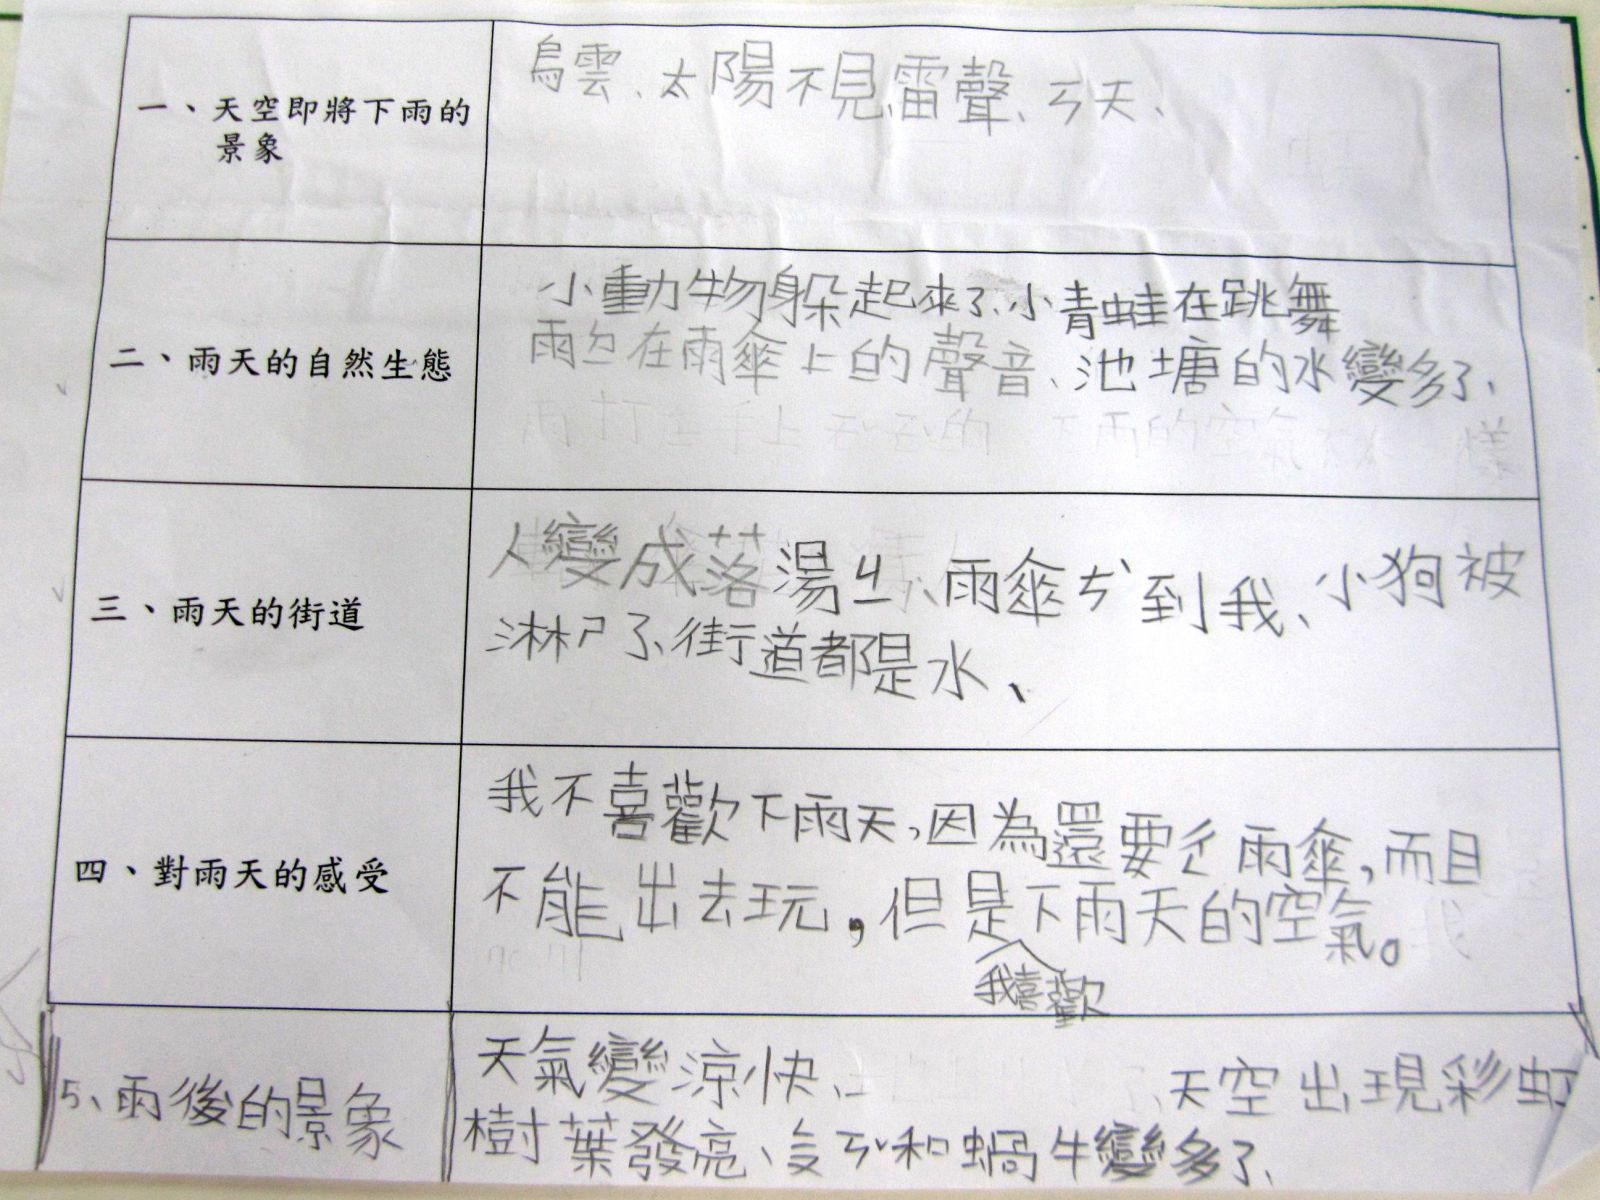 一、天空即將下雨的
景象
烏雲、太陽不見、雷聲、ㄢ天、
二、雨天的自然生態
小動物躲起來了、小青蛙在跳舞
雨ㄉㄚ在雨傘上的聲音、池塘的水變多了、
三、雨天的街道
人變成落湯ㄐㄧ、雨傘ㄘˋ到我、小狗被
淋ㄕ了、街道都是水、
四、對雨天的感受
我不喜歡下雨天，因為還要ㄔㄥ雨傘，而且
不能出去玩，但是下雨天的空氣。
我喜歡
5、雨後的景象
天氣變涼快、天空出現彩虹
樹葉發亮、和蝸牛變多了、